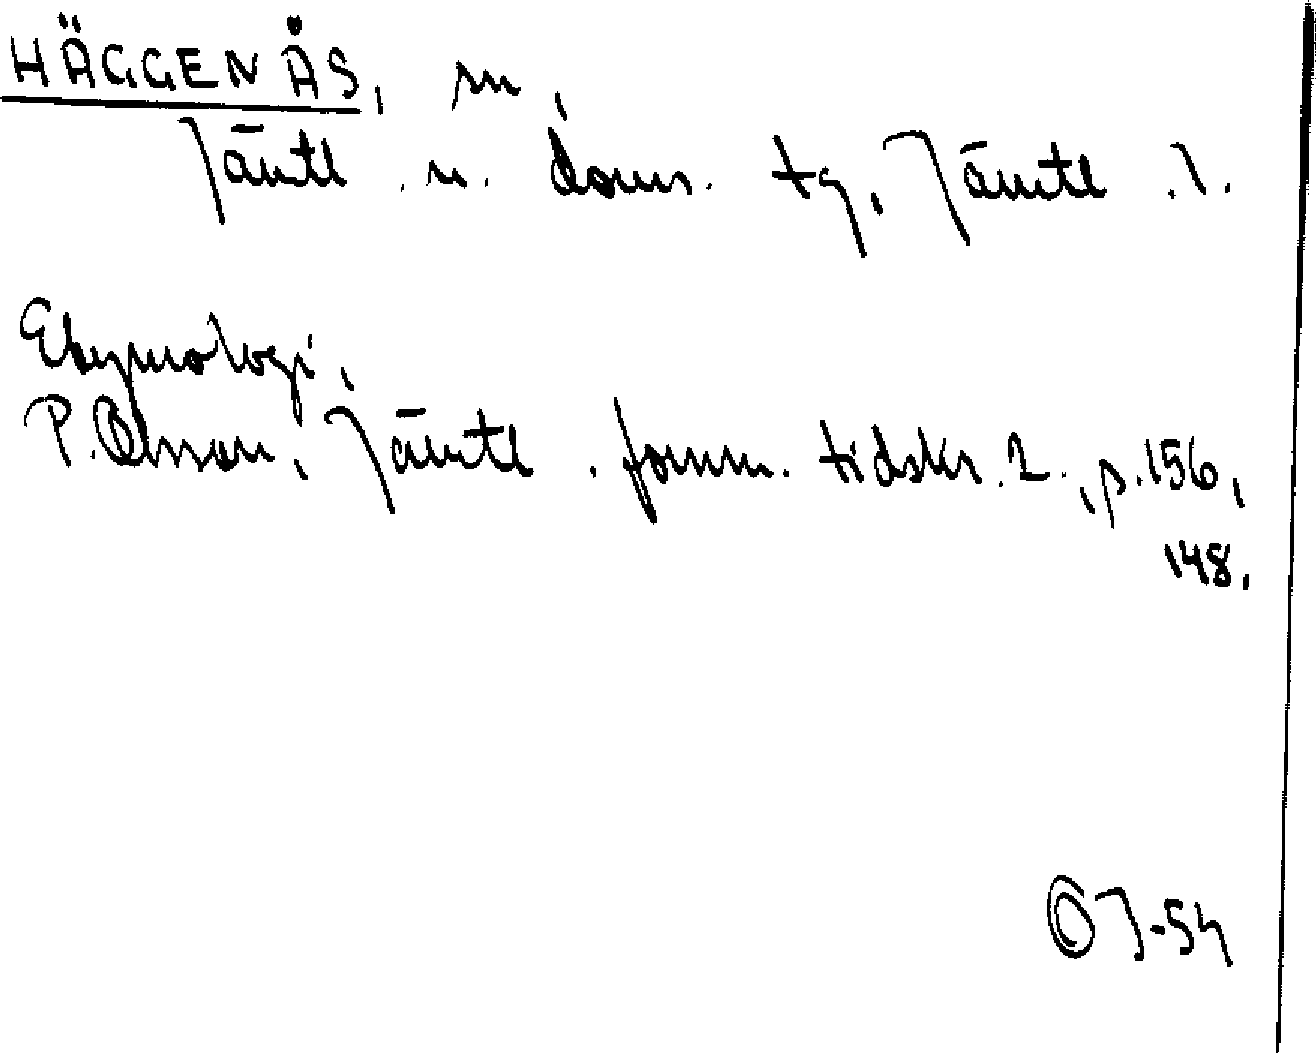 HÄGGENÅS, sn,
Jämtl. n. doms. tg, Jämtl. l.
Etymologi,
P. Olsson, Jämtl. fornm. tidskr. 2., s. 156,
148.
ÖJ-54